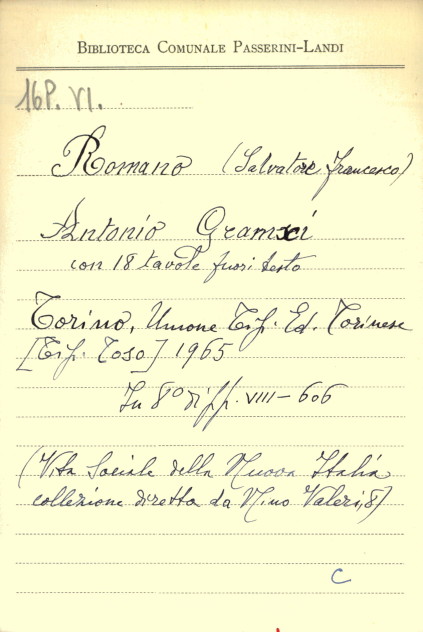 BIBLIOTECA COMUNALE PASSERINI-LANDI
16P. VI.
Romano (Salvatore Francesco)
Antonio Gramsci
con 18 tavole fuori testo
Torino, Unione Tip. Ed. Torinese
[Tip. Toso] 1965
In 8° di pp. VIII - 606
(Vita Sociale della Nuova Italia
collezione diretta da Nino Valeri, 8)
C